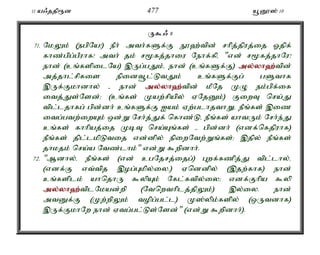 யஃததிரூன 477 யூனூஸ் 10
ருகூஃ 8
71. மேலும் (நபியே) நீர் அவர்களுக்கு நூஹ்வின் சரித்திரத்தை ஓதிக்
காண்பிப்பீராக! அவர் தம் சமூகத்தாரை நோக்கி, "என் சமூகத்தாரே!
நான் (உங்களிடையே) இருப்பதும், நான் (உங்களுக்கு) அல்லாஹ்வின்
அத்தாட்சிகளை நினைவூட்டுவதும் உங்களுக்குப் பளுவாக
இருக்குமானால் - நான் அல்லாஹ்வின் மீதே முழு நம்பிக்கை
வைத்துள்ளேன்; (உங்கள் முயற்சியில் ஏதேனும்) குறைவு செய்து
விட்டதாகப் பின்னர் உங்களுக்கு ஐயம் ஏற்படாதவாறு நீங்கள் இணை
வைப்பவற்றையும் ஒன்று சேர்த்துக் கொண்டு, நீங்கள் யாவரும் சேர்ந்து
உங்கள் காரியத்தை முடிவு செய்யுங்கள் - பின்னர் (எனக்கெதிராக)
நீங்கள் திட்டமிடுவதை என்னில் நிறைவேற்றுங்கள்; இதில் நீங்கள்
தாமதம் செய்ய வேண்டாம்" என்று கூறினார்.
72. "ஆனால், நீங்கள் (என் உபதேசத்தைப்) புறக்கணித்து விட்டால்,
(எனக்கு எவ்வித இழப்புமில்லை.) ஏனெனில் (இதற்காக) நான்
உங்களிடம் யாதொரு கூலியும் கேட்கவில்லை; எனக்குரிய கூலி
அல்லாஹ்விடமேயன்றி (வேறெவரிடத்திலும்) இல்லை. நான்
அவனுக்கு (முற்றிலும் வழிப்பட்ட) முஸ்லிம்களில் (ஒருவனாக)
இருக்குமாறே நான் ஏவப்பட்டுள்ளேன்" (என்று கூறினார்).